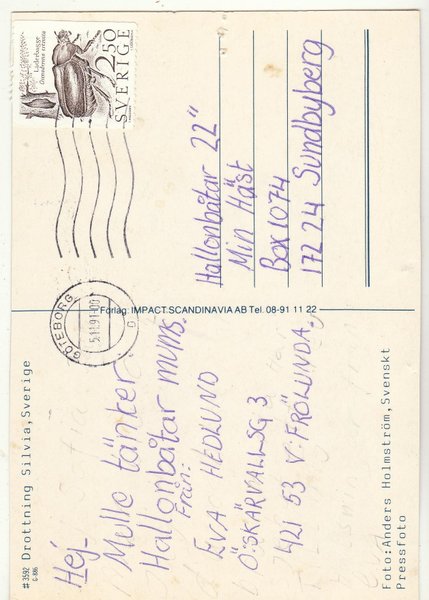 #3592 Drottning Silvia, Sverige
G-886
Hej
Mulle tänker
Hallonbåtar mums.
Från:
EVA HEDLUND
Ö:SKÄRVALLSG 3
421 53 V:FRÖLUNDA.
Foto: Anders Holmström, Svenskt
Pressfoto
Förlag: IMPACT SCANDINAVIA AB Tel. 08-91 11 22
GÖTEBORG
5.11.91
Läderbagge
Osmoderma eremita
2.50
SVERIGE
Hallonbåtar 22"
Min Häst
Box 1074
172 24 Sundbyberg